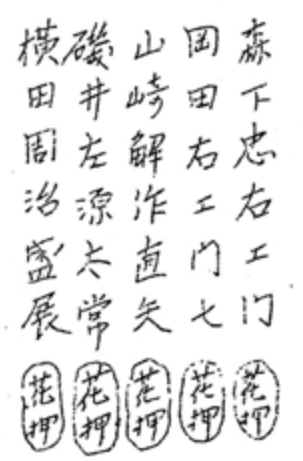 森下忠右エ门 花押
岡田右エ门七 花押
山崎解作直矢 花押
磯井左源太常 花押
横田周治盛展 花押